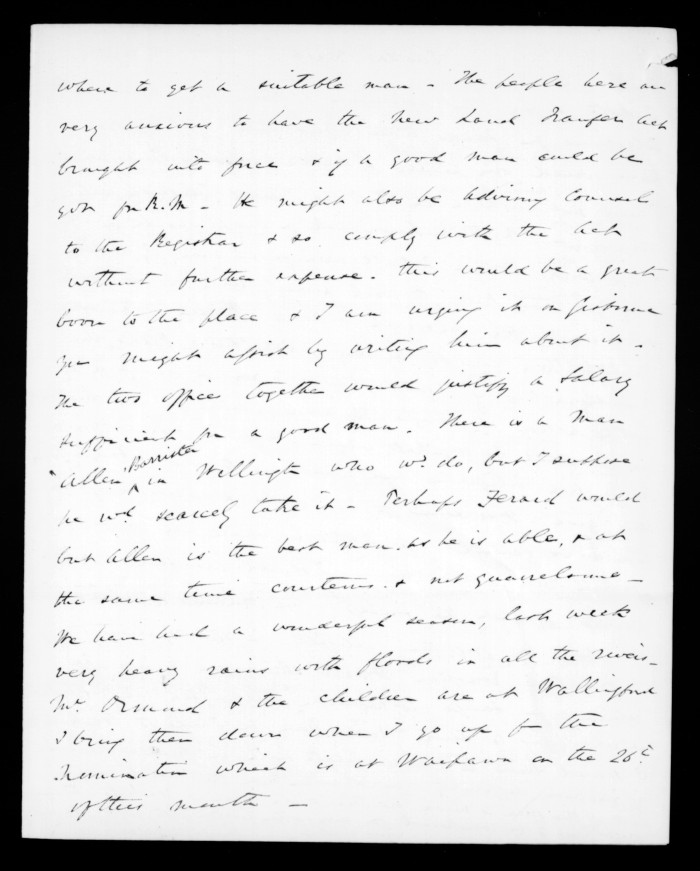 where to get a suitable man - The people here are
very anxious to have the New Land Transfer Act
brought into force & if a good man could be
got for R.M - He might also be Advising Counsel
to the Registrar & so comply with the Act
without further expense. This would be a great
boon to the place & I am urging it on Gisborne
you might assist by writing him about it -
The two office together would justify a Salary
sufficient for a good man. There is a Man
Barrister
"Allen in Wellington who wd. do, but I suppose
he wd. scarcely take it - Perhaps would
but Allen is the best man. as he is able, & at
the same time courteous. & not quarrelsome -
We have had a wonderful season, last week
very heavy rains with floods in all the rivers -
Mrs. Ormond & the children are at Wallingford
I bring them down when I go up for the
Nomination which is at Waipawa on the 26th
of this month -